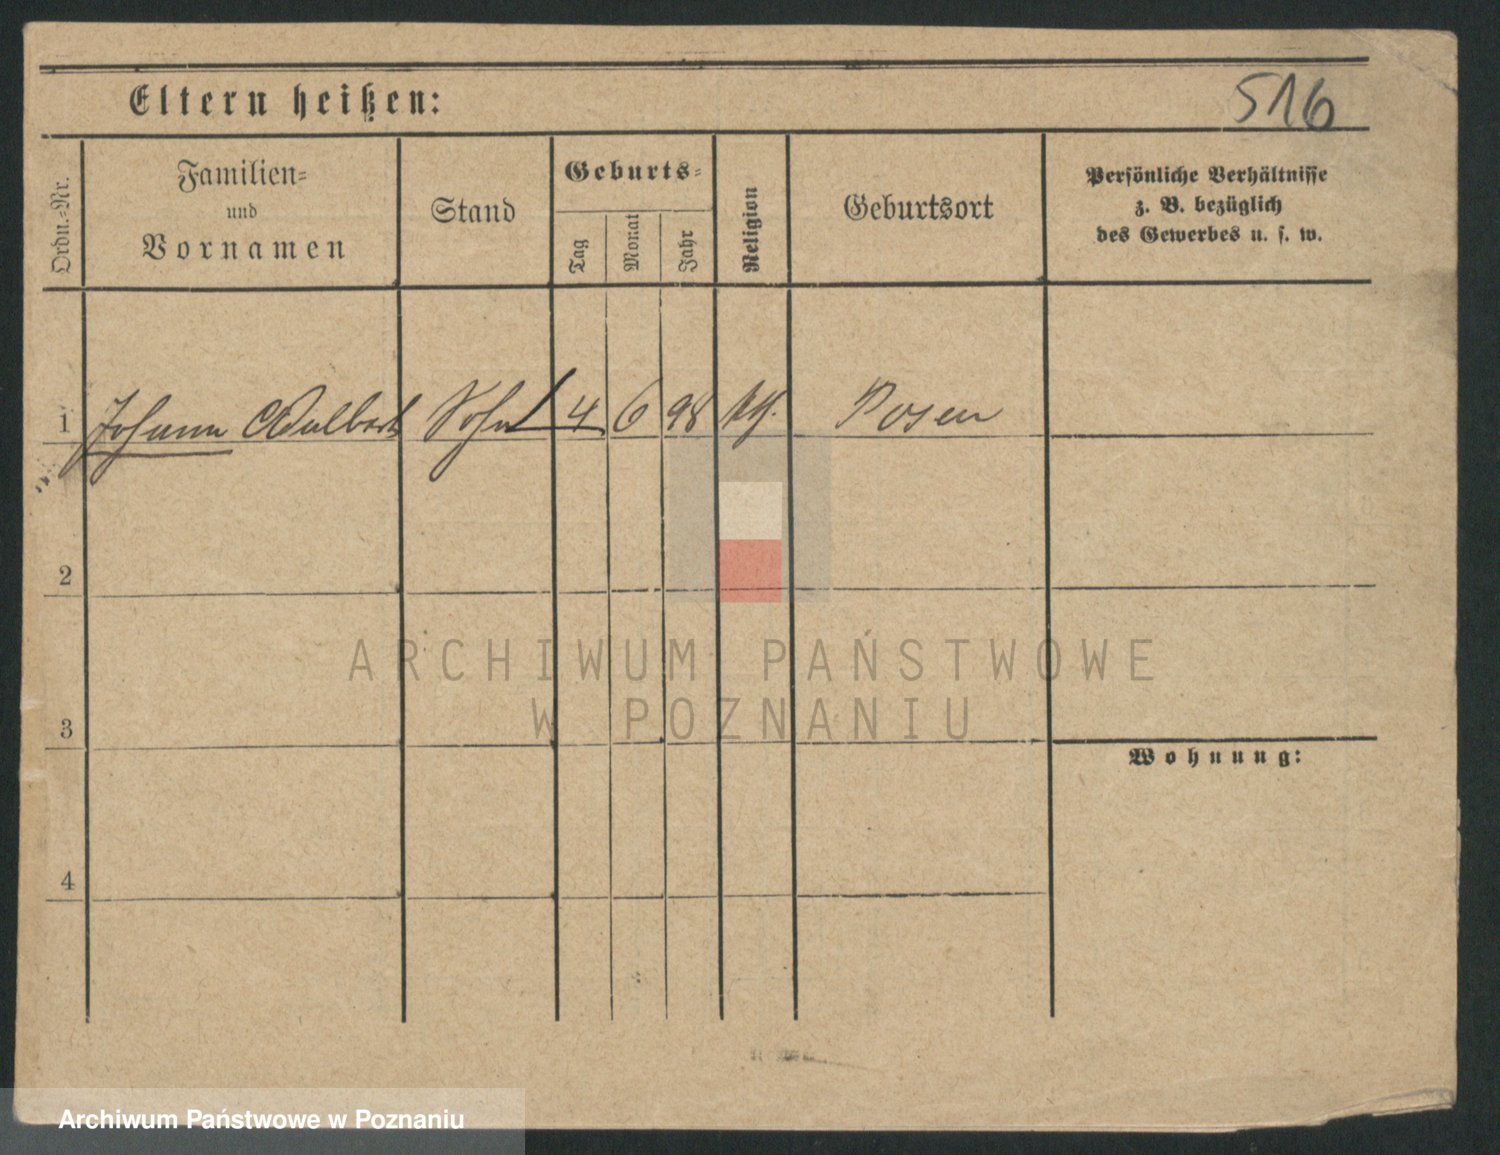 Eltern heißen:
516
Ordn.=Nr.
Familien=
und
Vornamen
Stand
Geburts=
Tag
Monat
Jahr
Religion
Geburtsort
Persönliche Verhältnisse
z. B. bezüglich
des Gewerbes u. s. w.
1 Johann Sohn 4 6 98 kth. Posen
2
3
Wohnung:
4
ARCHIWUM PAŃSTWOWE
W POZNANIU
Archiwum Państwowe w Poznaniu